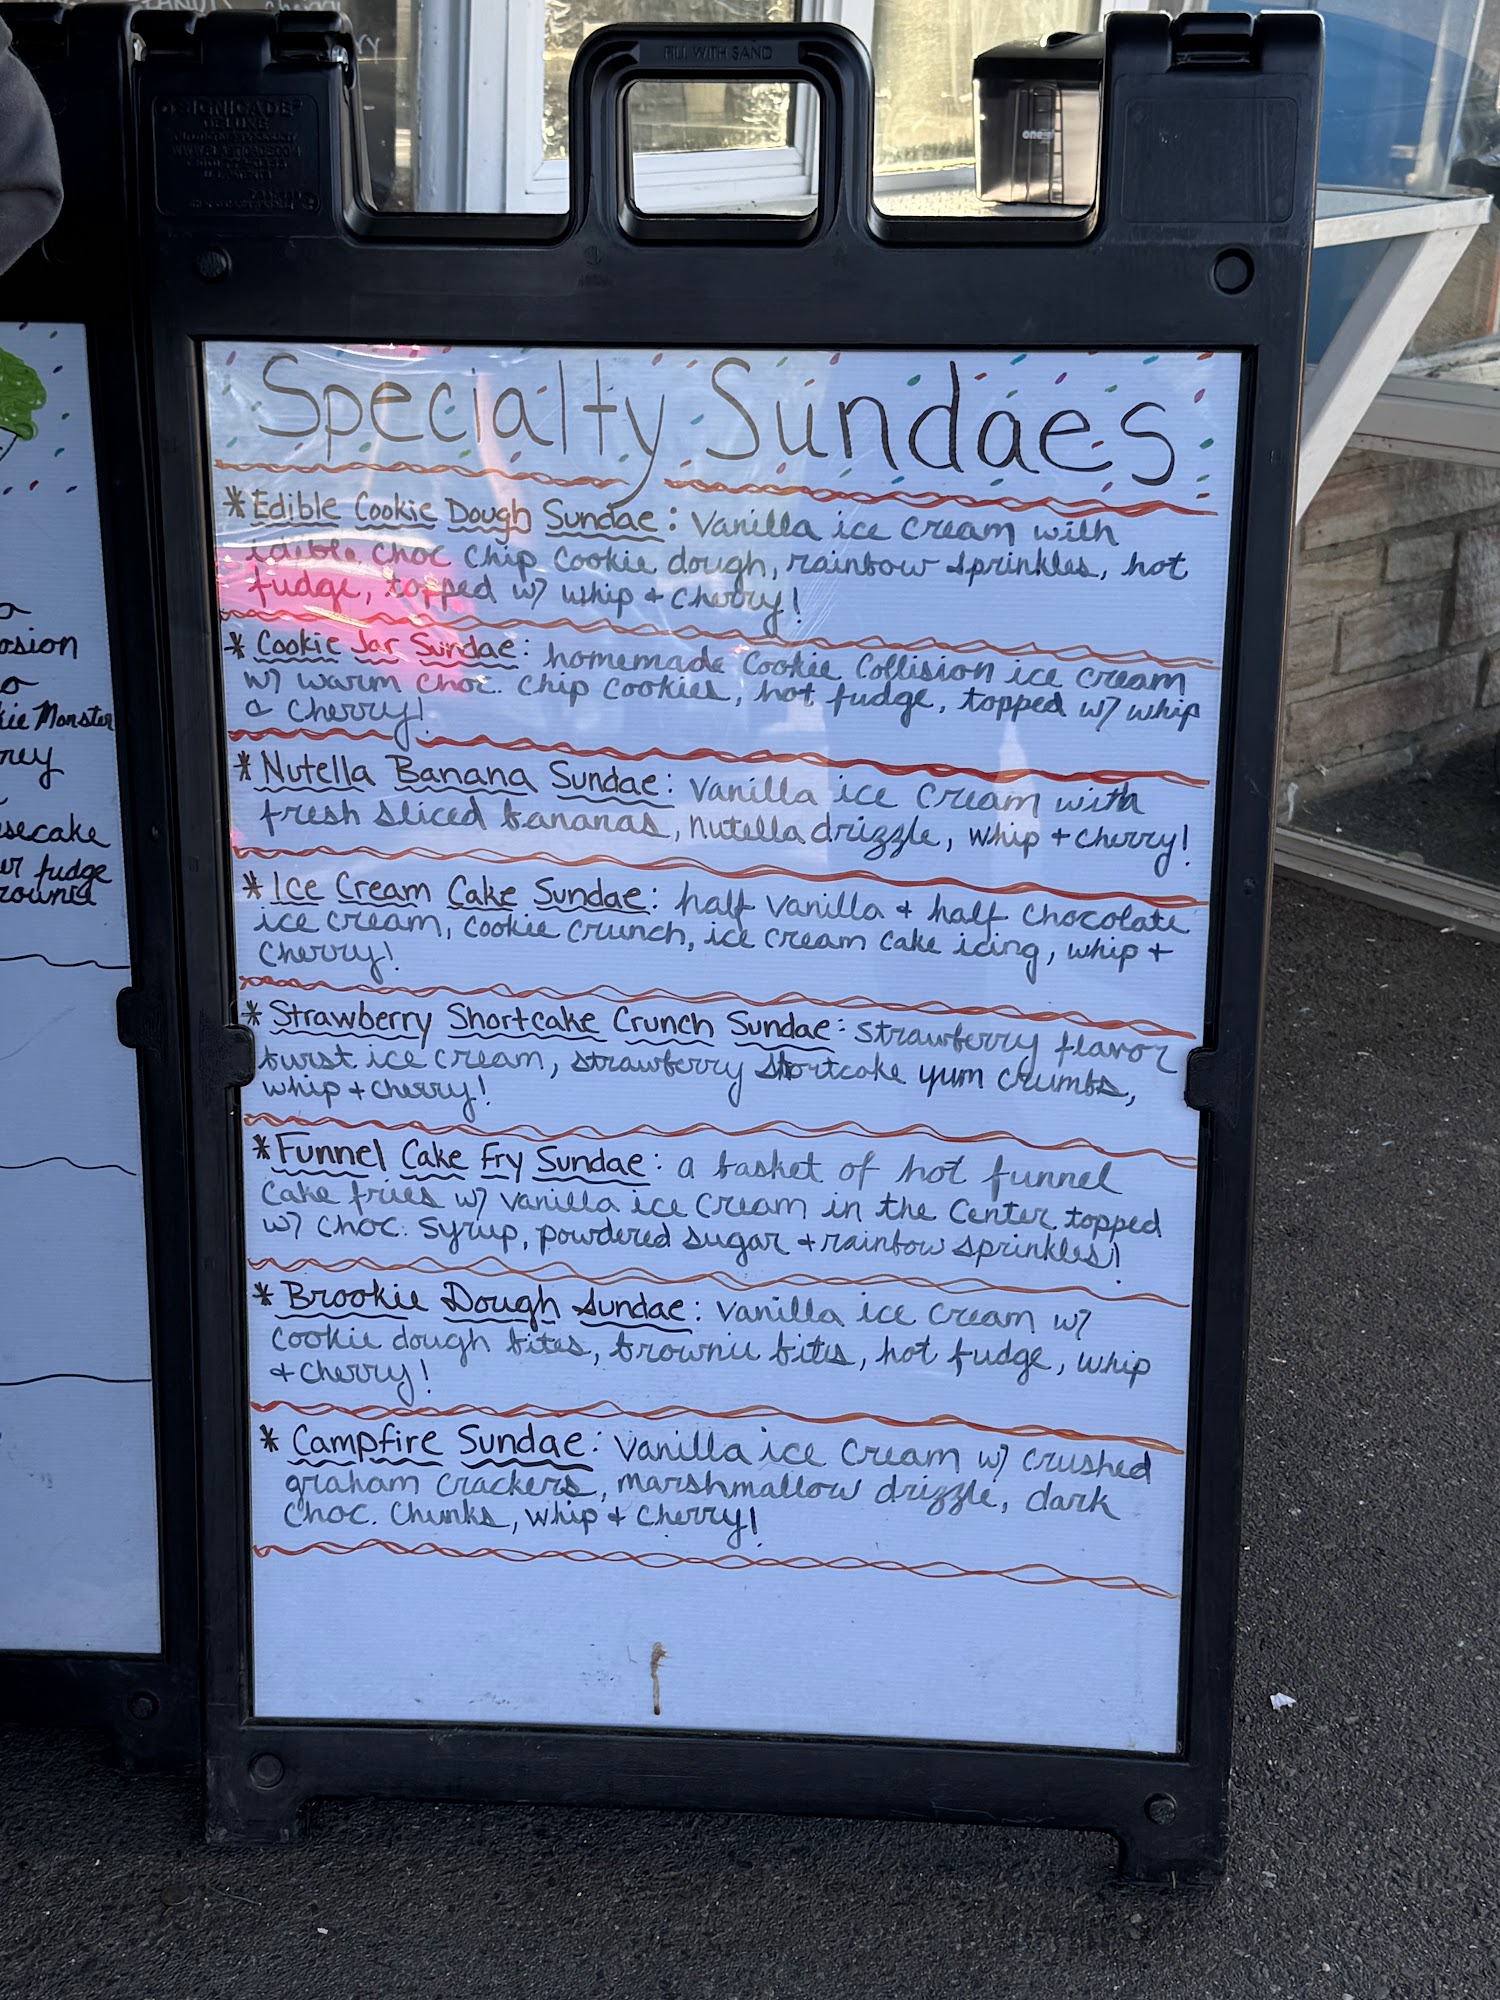 FILL WITH SAND
SIGNICADE
DELUXE
one
Specialty Sundaes
* Edible Cookie Dough Sundae: Vanilla ice cream with
choc chip cookie dough, rainbow sprinkles, hot
fudge, topped w/ whip + cherry!
* Cookie Jar Sundae: homemade Cookie Collision ice cream
w/ warm choc. chip cookies, hot fudge, topped w/ whip
a cherry!
* Nutella Banana Sundae: Vanilla ice cream with
fresh sliced bananas, nutella drizzle, whip + cherry!
* Ice Cream Cake Sundae: half vanilla + half chocolate
ice cream, cookie crunch, ice cream cake icing, whip +
cherry!
* Strawberry Shortcake Crunch Sundae: strawberry flavor
burst ice cream, strawberry shortcake yum crumbs,
whip + cherry!
* Funnel Cake Fry Sundae: a basket of hot funnel
cake fries w/ vanilla ice cream in the center topped
w/ choc. syrup, powdered sugar + rainbow sprinkles!
* Brookie Dough Sundae: Vanilla ice cream w/
cookie dough bites, brownie bites, hot fudge, whip
+ cherry!
* Campfire Sundae: Vanilla ice cream w/ crushed
graham crackers, marshmallow drizzle, dark
choc. chunks, whip + cherry!
osion
kie Monster
ney
esecake
er fudge
rownie